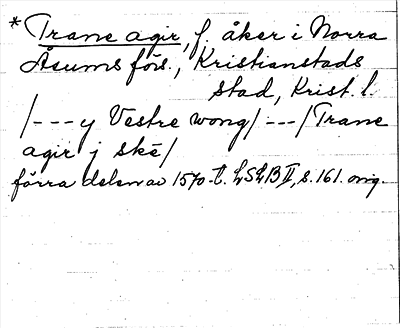 * Trane agir, f. åker i Norra
Åsums förs., Kristianstads
stad, Krist. l.
/--- y Vestre wong/ ---/Trane
agir j ske/
förra delen av 1570-t. LSLB II, s. 161. orig.